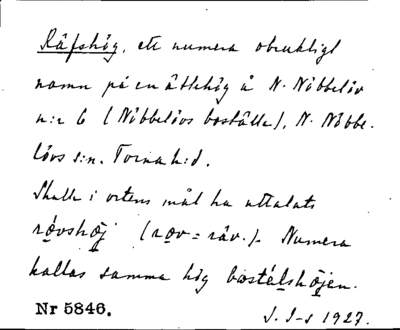 Räfshög, ett numera obrukligt
namn på en ättehög å N. Nöbbelöv
n:r 6 (Nöbbelövs boställe), N. Nöbbe-
lövs s:n. Torna h:d.
Skulle i ortens mål ha uttalats
rǫvshǫj (rǫv = räv.). Numera
kallas samma hög bostälshöjen.
Nr 5846. J. I-s 1927.